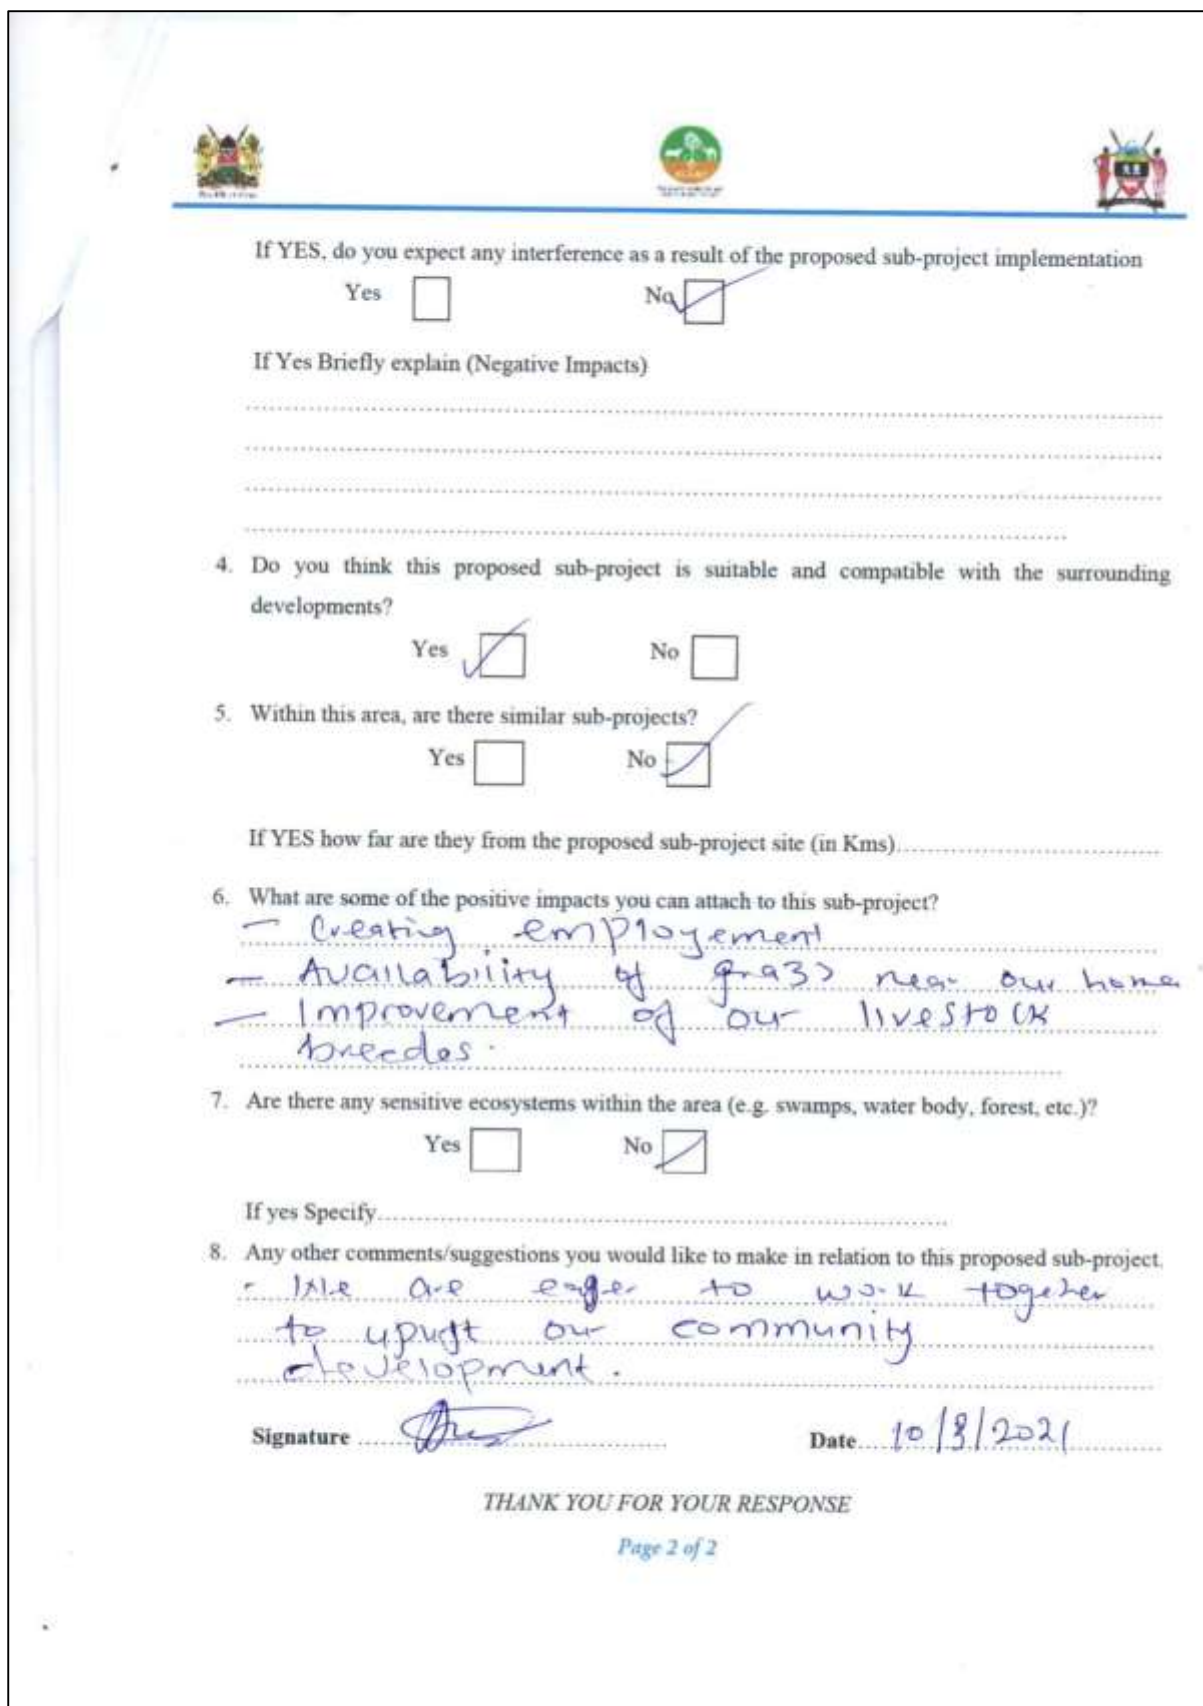 If YES, do you expect any interference as a result of the proposed sub-project implementation
Yes No
If Yes Briefly explain (Negative Impacts)
4. Do you think this proposed sub-project is suitable and compatible with the surrounding
developments?
Yes No
5. Within this area, are there similar sub-projects?
Yes No
If YES how far are they from the proposed sub-project site (in Kms)
6. What are some of the positive impacts you can attach to this sub-project?
- Creating employement
- Availability of grass near our home
- Improvement of our livestock
breedes.
7. Are there any sensitive ecosystems within the area (e.g. swamps, water body, forest, etc.)?
Yes No
If yes Specify
8. Any other comments/suggestions you would like to make in relation to this proposed sub-project.
- We are eager to work together
to uplift our community
development.
Signature Date 10/8/2021
THANK YOU FOR YOUR RESPONSE
Page 2 of 2